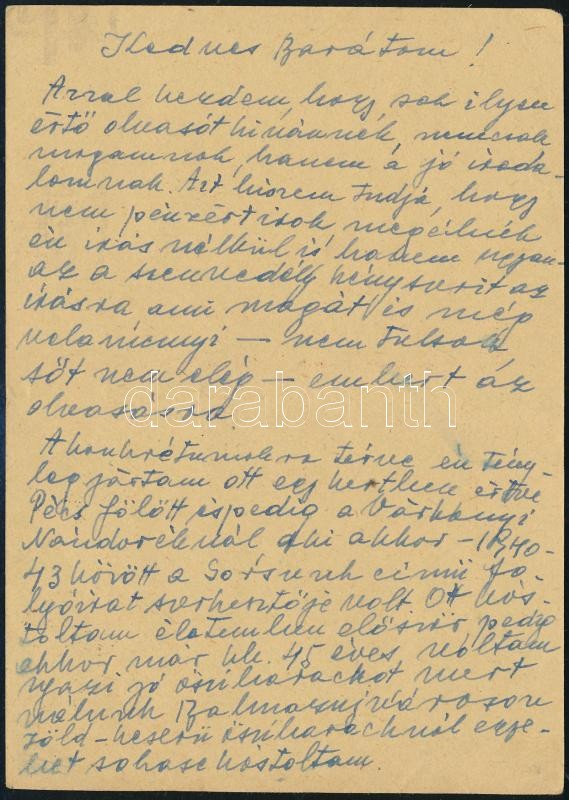 Kedves Barátom!
Azzal kezdem, hogy sok ilyen
értő olvasót kívánnék, nemcsak
magamnak, hanem a jó iroda-
lomnak. Azt hiszem tudja, hogy
nem pénzért írok, megélnék
én írás nélkül is hanem ugyan-
az a szenvedély kényszerit az
írásra ami magát és még
valamennyi — nem túlsok
sőt nem elég — embert az
olvasásra.
darabanth
A konkrétumokra térve én tény-
leg jártam ott egy kertben értve
Pécs fölött éspedig a Várkonyi
Nándoréknál aki akkor — 1940-
43 között a Sorsunk című fo-
lyóirat szerkesztője volt. Ott kós-
toltam életemben először pedig
akkor már kb. 45 éves voltam
igazi jó őszibarackot mert
nálunk Balmazujvároson
zöld-keserű őszibaracknál egye-
bet sohase kóstoltam.